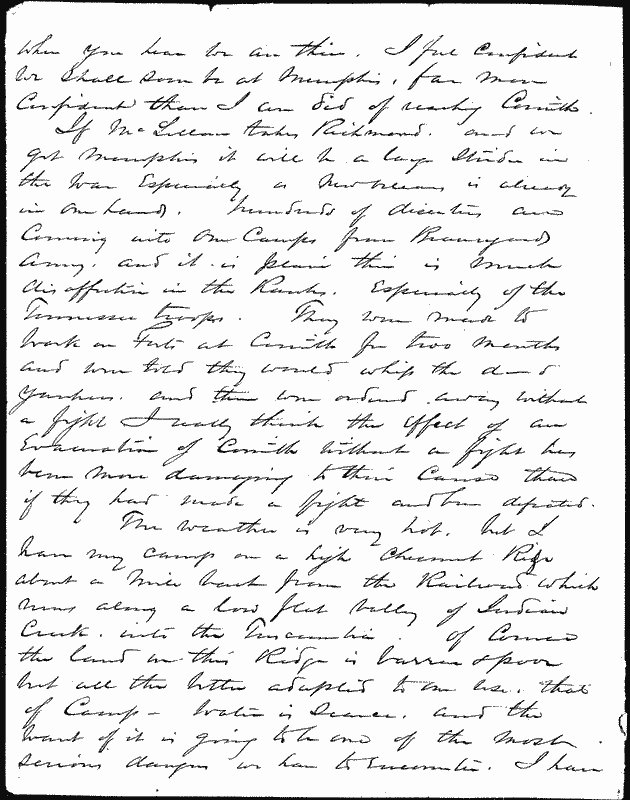 when you hear we are there. I feel confident
we shall soon be at Memphis, far more
confident than I ever did of reaching Corinth.
If McClellan takes Richmond. and we
get Memphis it will be a large Stride in
the War Especially as New Orleans is already
in our hands. Hundreds of deserters are
coming into our Camps from Beauregards
Army. and it is plain there is much
disaffection in the Ranks. Especially of the
Tennessee troops. They were made to
work on Forts at Corinth for two months
and were told they would whip the d—d
Yankees. and then were ordered away without
a fight I really think the effect of an
Evacuation of Corinth without a fight has
been more damaging to their Cause than
if they had made a fight and been defeated.
The weather is very hot. but I
have my camp on a high Chesnut Ridge
about a mile back from the Railroad which
runs along a low flat valley of Indian
Creek. into the Tuscumbia. Of Course
the land on this Ridge is barren & poor
but all the better adapted to our use. that
of Camp - Water is Scarce. and the
want of it is going to be one of the most
serious dangers we have to Encounter. I have